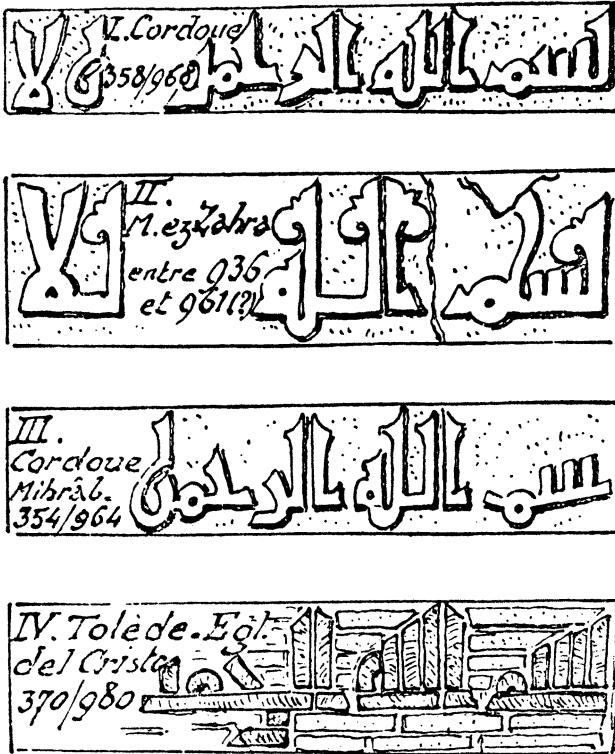 I. Cordoue
358/968
لا
بسم الله الرحمن
II.
M. ez Zahra
entre 936
et 961(?)
بسم الله
لا
III.
Cordoue
Mihrâb.
354/964
بسم الله الرحمن
IV. Tolède. Egl.
del Cristo
370/980